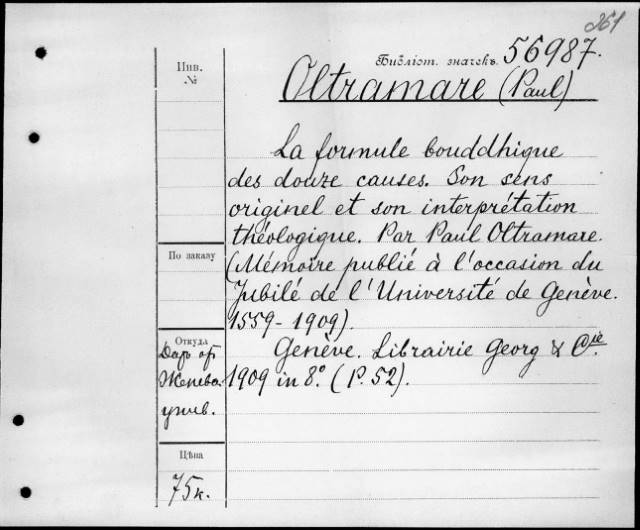 261
Инв.
№
Библіот. значекъ 56987.
Oltramare (Paul)
La formule bouddhique
des douze causes. Son sens
originel et son interprétation
théologique. Par Paul Oltramare.
(Mémoire publié à l'occasion du
Jubilé de l'Université de Genève.
1559-1909).
Genève. Librairie Georg & Cie.
1909 in 8.° (P. 52).
По заказу
Откуда
Даръ от
Женева
унив.
Цѣна
75к.